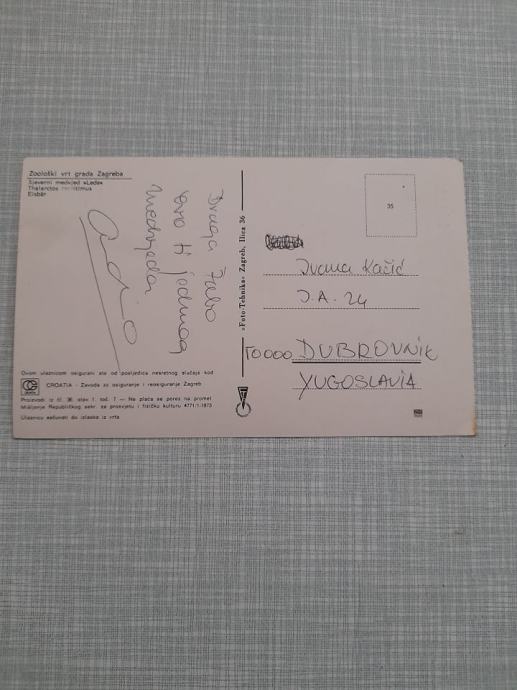 Zoološki vrt grada Zagreba
Sjeverni medvjed »Leda«
Thalarctos maritimus
Eisbär
Draga Žabo
evo ti jednog
medvjeda
Ovom ulaznicom osigurani ste od posljedica nesretnog slučaja kod
CROATIA - Zavoda za osiguranje i reosiguranje Zagreb
Proizvodi iz čl. 36. stav 1. tod. 7 — Ne plaća se porez na promet
Mišljenje Republičkog sekr. za prosvjetu i fizičku kulturu 4771/1-1973
Ulaznicu sačuvati do izlaska iz vrta
»Foto-Tehnika« Zagreb, Ilica 36
35
Ivana Kačić
J.A. 24
DUBROVNIK
YUGOSLAVIA